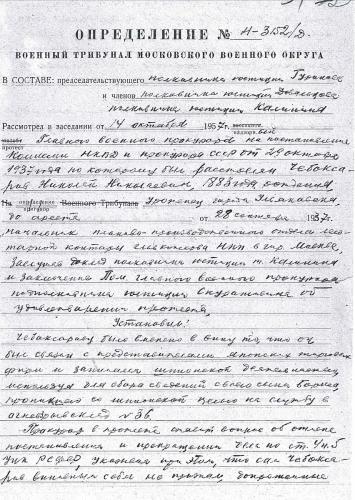 ОПРЕДЕЛЕНИЕ № Н-3152/Д.
ВОЕННЫЙ ТРИБУНАЛ МОСКОВСКОГО ВОЕННОГО ОКРУГА
В СОСТАВЕ: председательствующего полковника юстиции
и членов полковника юстиции
полковника юстиции Калинина
Рассмотрел в заседании от 14 октября 1957г.
протест Главного военного прокурора на постановление
Комиссии НКВД и прокурора СССР от 29 октября
1937 года по которому был расстрелян Чебокса-
ров Николай Николаевич, 1883 года рождения
На Военного Трибунала уроженец города
до ареста от 28 сентября 1937г.
начальник планово-производственного отдела
конторы в гор. Москве,
Заслушав доклад полковника юстиции т. Калинина
и заключение Пом. главного военного прокурора
подполковника юстиции об
удовлетворении протеста,
Установил:
Чебоксарову было вменено в вину то, что он
был связан с представителями японских торговых
фирм и занимался шпионской деятельностью
используя для сбора сведений своего сына Бориса
проникшего со шпионской целью на службу в
Прокурор в протесте ставит вопрос об отмене
постановления и прекращении дела по ст. 4 п. 5
УПК РСФСР, указывая при этом, что сам Чебокса-
ров виновным себя не признал, допрошенные